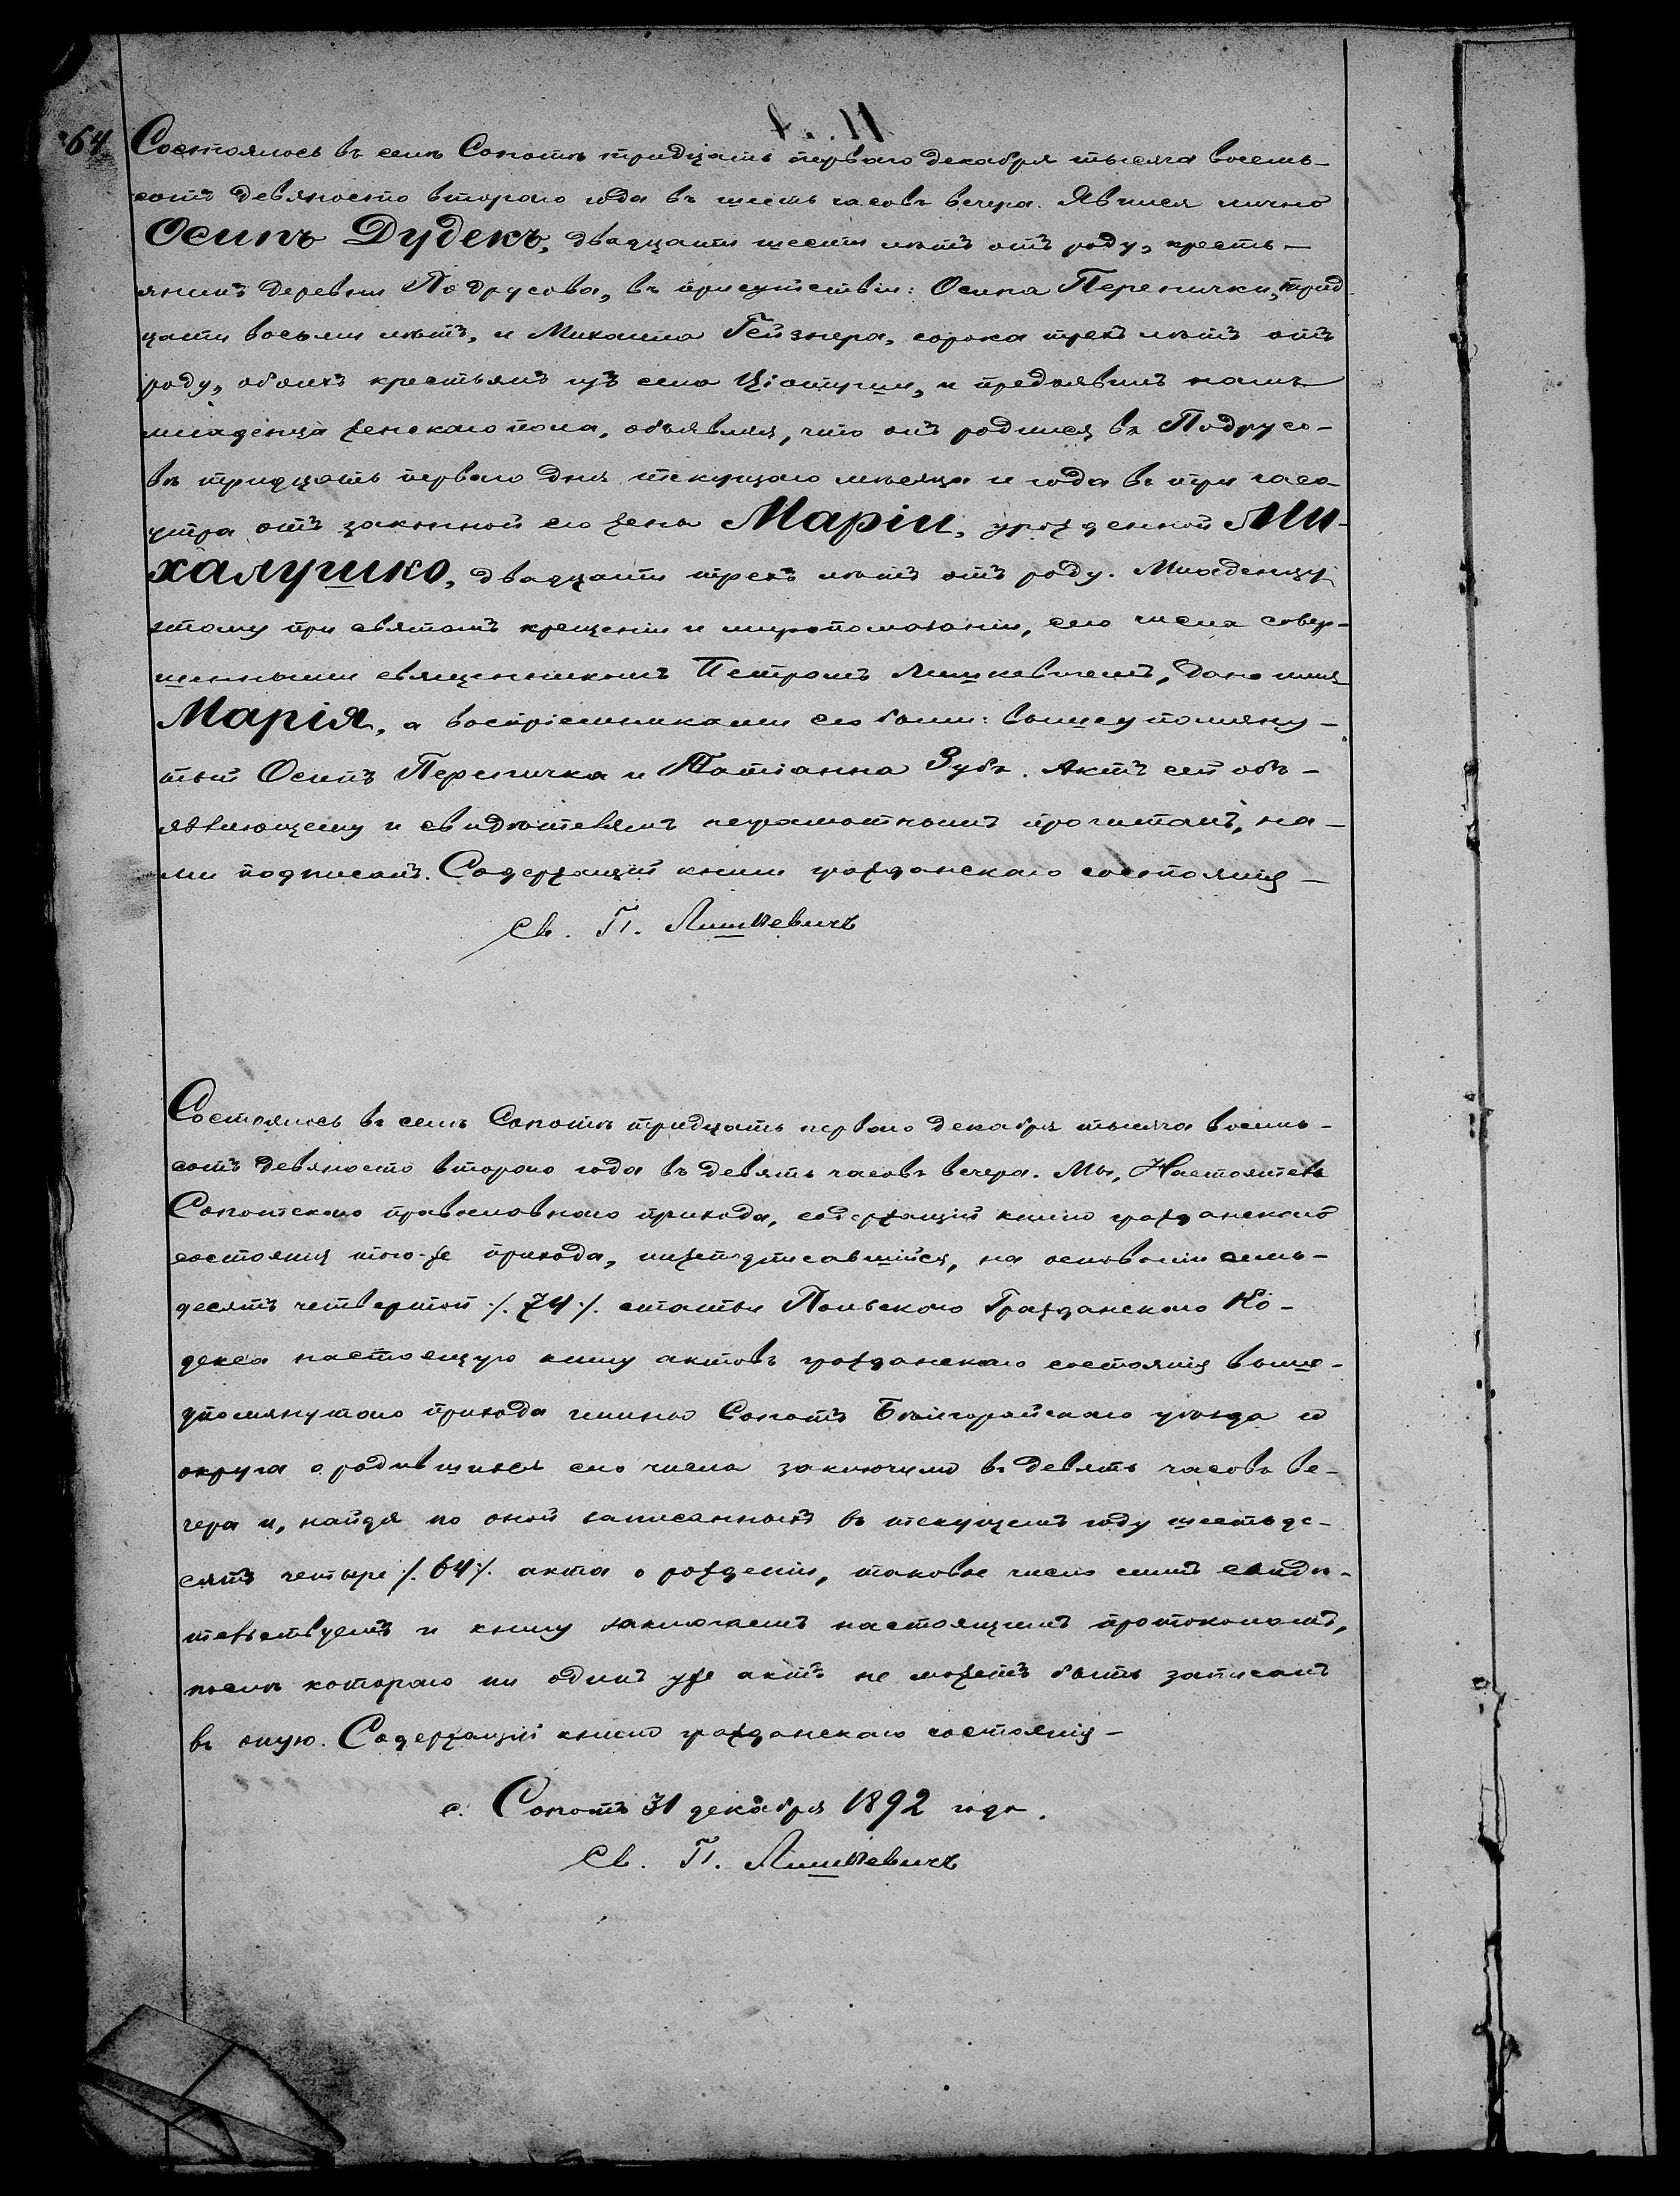 64 Состоялось въ селѣ Сопотѣ тридцать перваго декабря тысяча восемь-
сотъ девяносто второго года въ шесть часовъ вечера. Явился лично
Осипъ Дудекъ, двадцати шести лѣтъ отъ роду, кресть-
янинъ деревни Подрусова, въ присутствіи: Осипа Перепички, трид
цати восьми лѣтъ, и Михаила Гейзнера, сорока трехъ лѣтъ отъ
роду, обоихъ крестьянъ изъ села и предъявилъ намъ
младенца женскаго пола, объявляя, что онъ родился въ Подрусо-
вѣ тридцать перваго дня текущаго мѣсяца и года въ три часа
утра отъ законной его жены Маріи, урожденной Ми-
халушко, двадцати трехъ лѣтъ отъ роду. Младенцу
этому при святомъ крещеніи и мѵропомазаніи, сего числа совер-
шенными священникомъ Петромъ Лишкевичемъ, дано имя
Марія, а воспріемниками его были: вышеупомяну-
тый Осипъ Перепичка и Татіанна Зубъ. Актъ сей объ-
являющему и свидѣтелямъ неграмотнымъ прочитанъ, на-
ми подписанъ. Содержащій книги гражданскаго состоянія
Св. П. Лишкевичъ
Состоялось въ селѣ Сопотѣ тридцать перваго декабря тысяча восемь-
сотъ девяносто второго года въ девять часовъ вечера. Мы, Настоятель
Сопотскаго православнаго прихода, содержащій книги гражданскаго
состоянія того-же прихода, нижеподписавшійся, на основаніи семь-
десятъ четвертой /. 74 /. статьи Польскаго Гражданскаго Ко-
декса настоящую книгу актовъ гражданскаго состоянія выше-
упомянутаго прихода гмины Сопотъ Бѣлгорайскаго уѣзда и
округа о родившихся сего числа заключили въ девять часовъ ве-
чера и, найдя по оной записанныхъ въ текущемъ году шестьде-
сятъ четыре /. 64 /. акта о рожденіи, таковое число симъ свидѣ-
тельствуемъ и книгу заключаемъ настоящимъ протоколомъ,
послѣ котораго ни одинъ уже актъ не можетъ быть записанъ
въ оную. Содержащій книги гражданскаго состоянія
с. Сопотъ 31 декабря 1892 года.
Св. П. Лишкевичъ